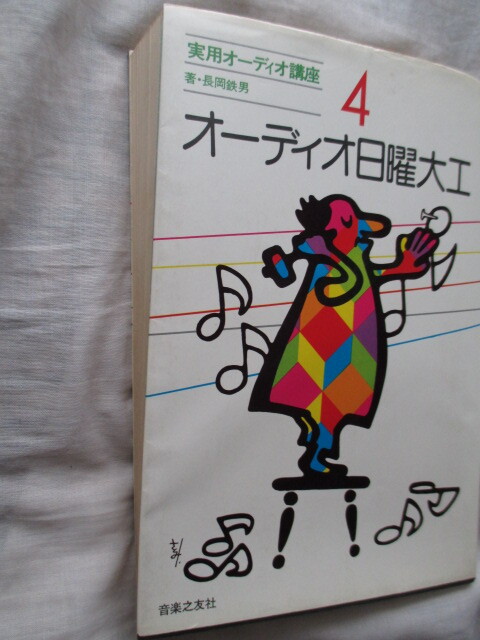 実用オーディオ講座
著・長岡鉄男
4
オーディオ日曜大工
音楽之友社